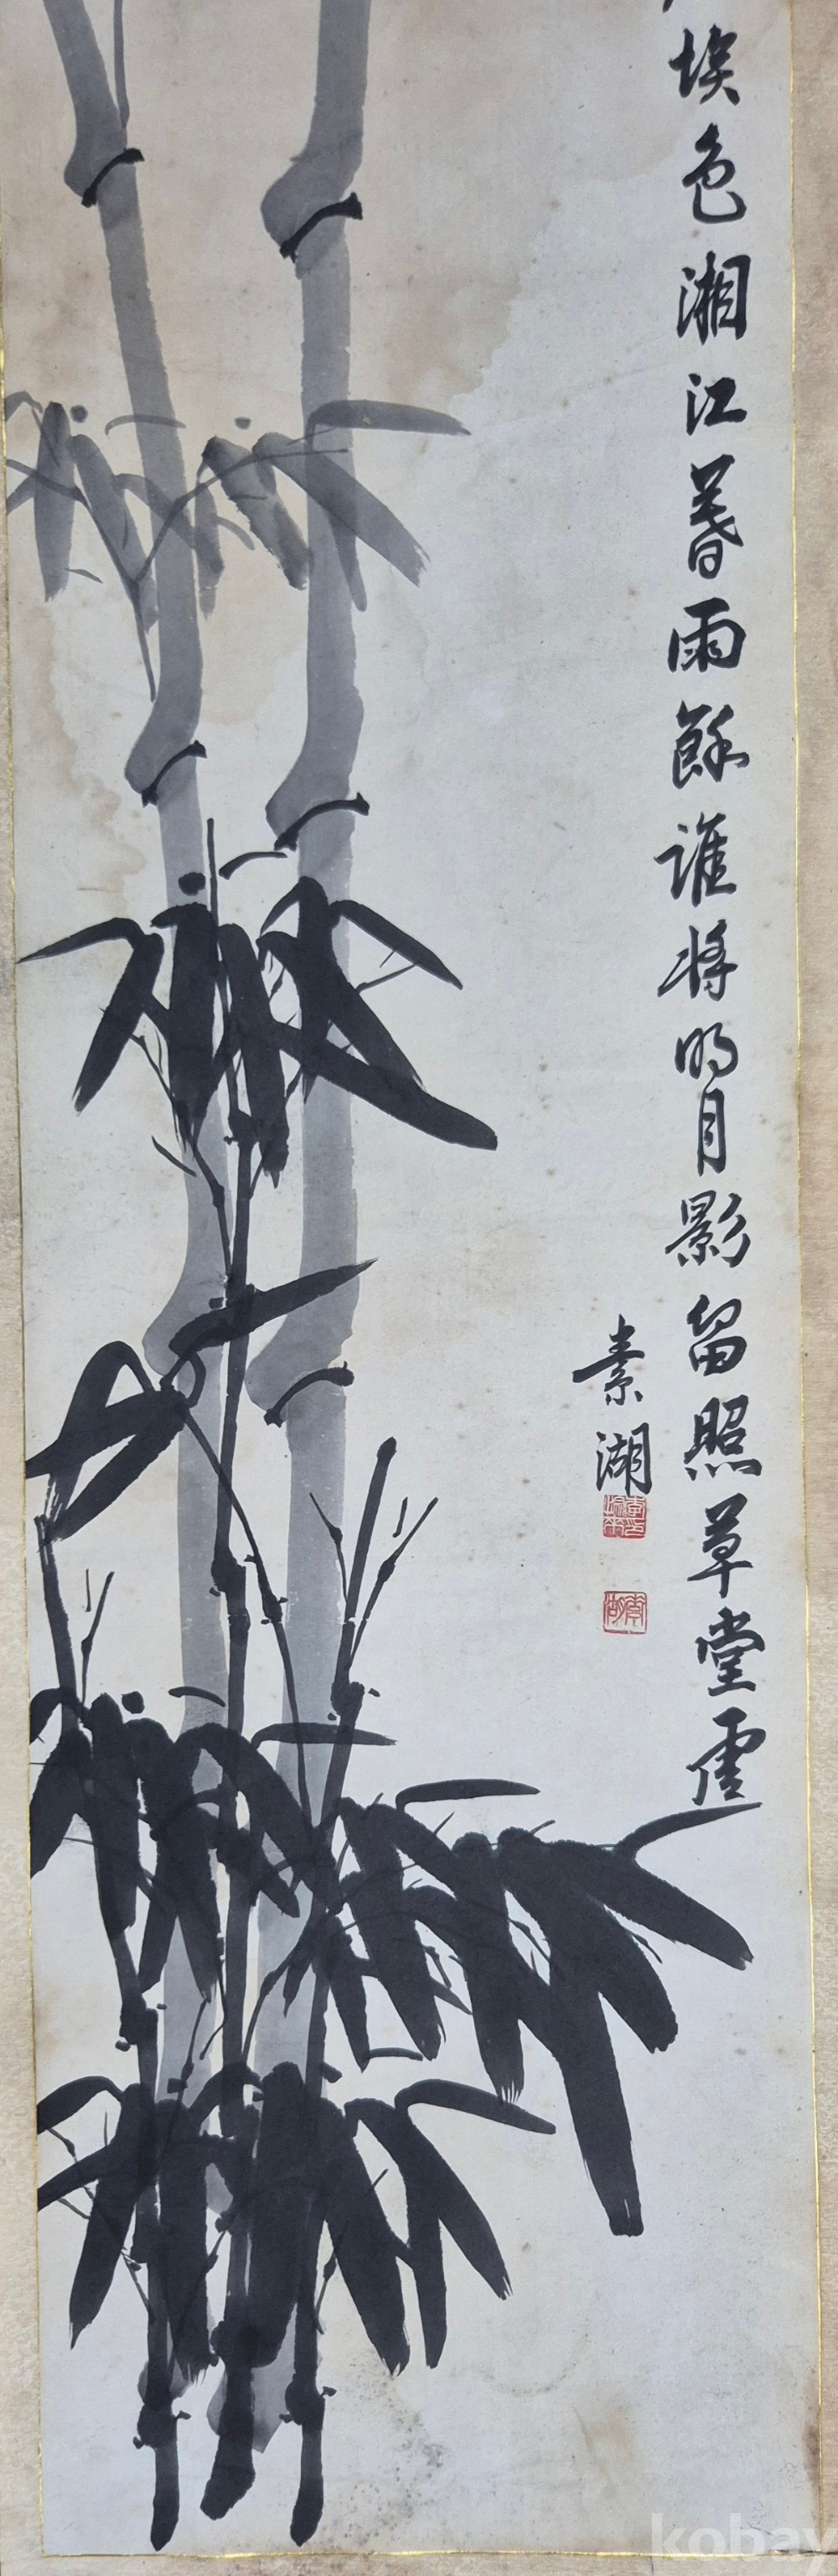 埃色湘江暮雨餘誰將明月影留照草堂虛
素湖
kobay